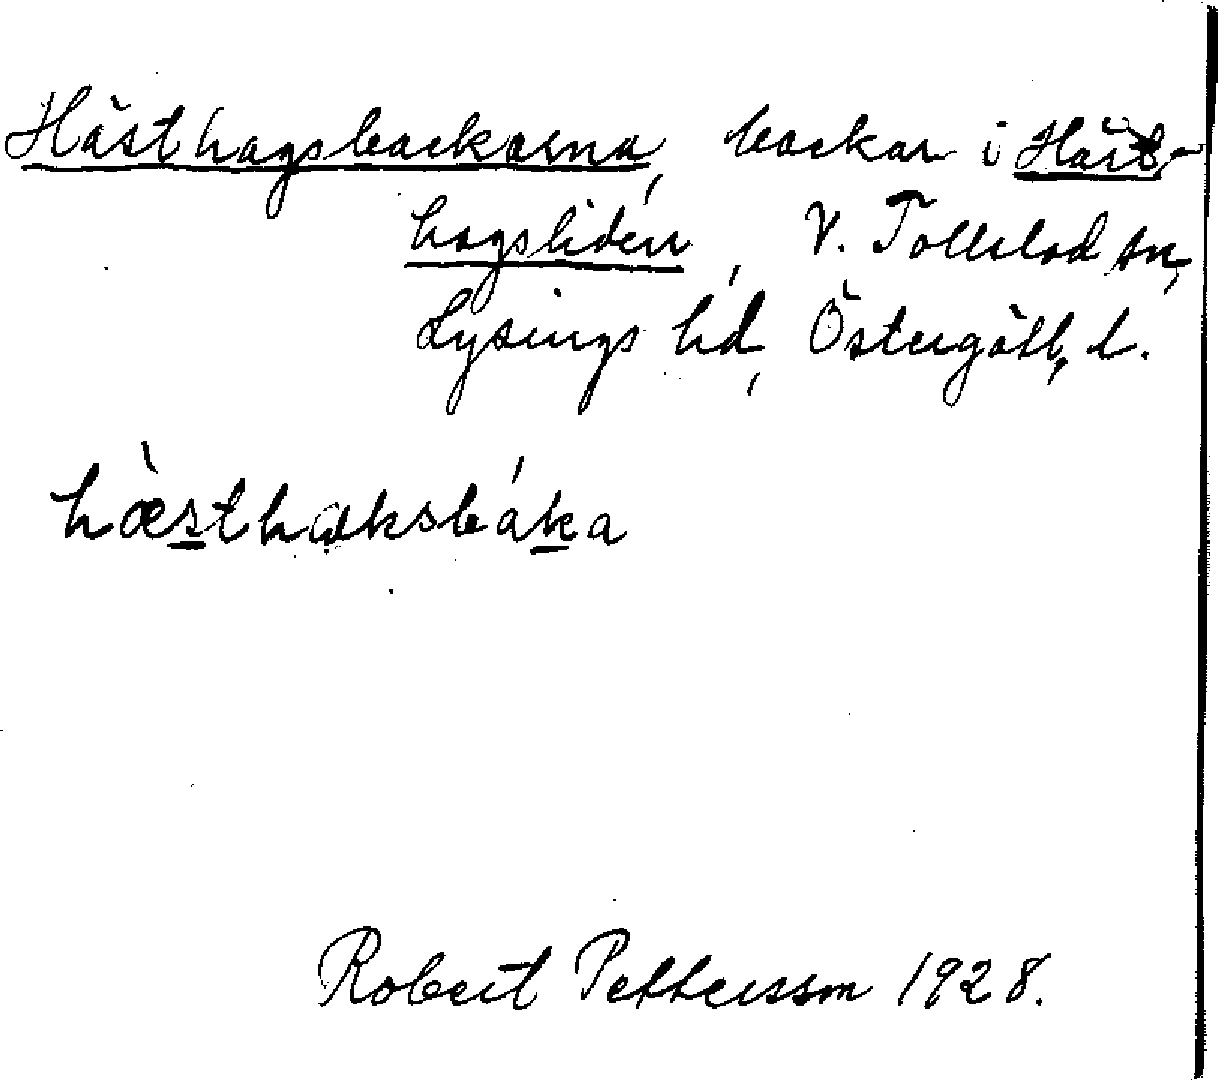 Hästhagsbackarna, backar i Häst-
hagsliden, V. Tollstad sn,
Lysings hd, Östergötl. l.
hæ̀sthɑksbáka
Robert Pettersson 1928.